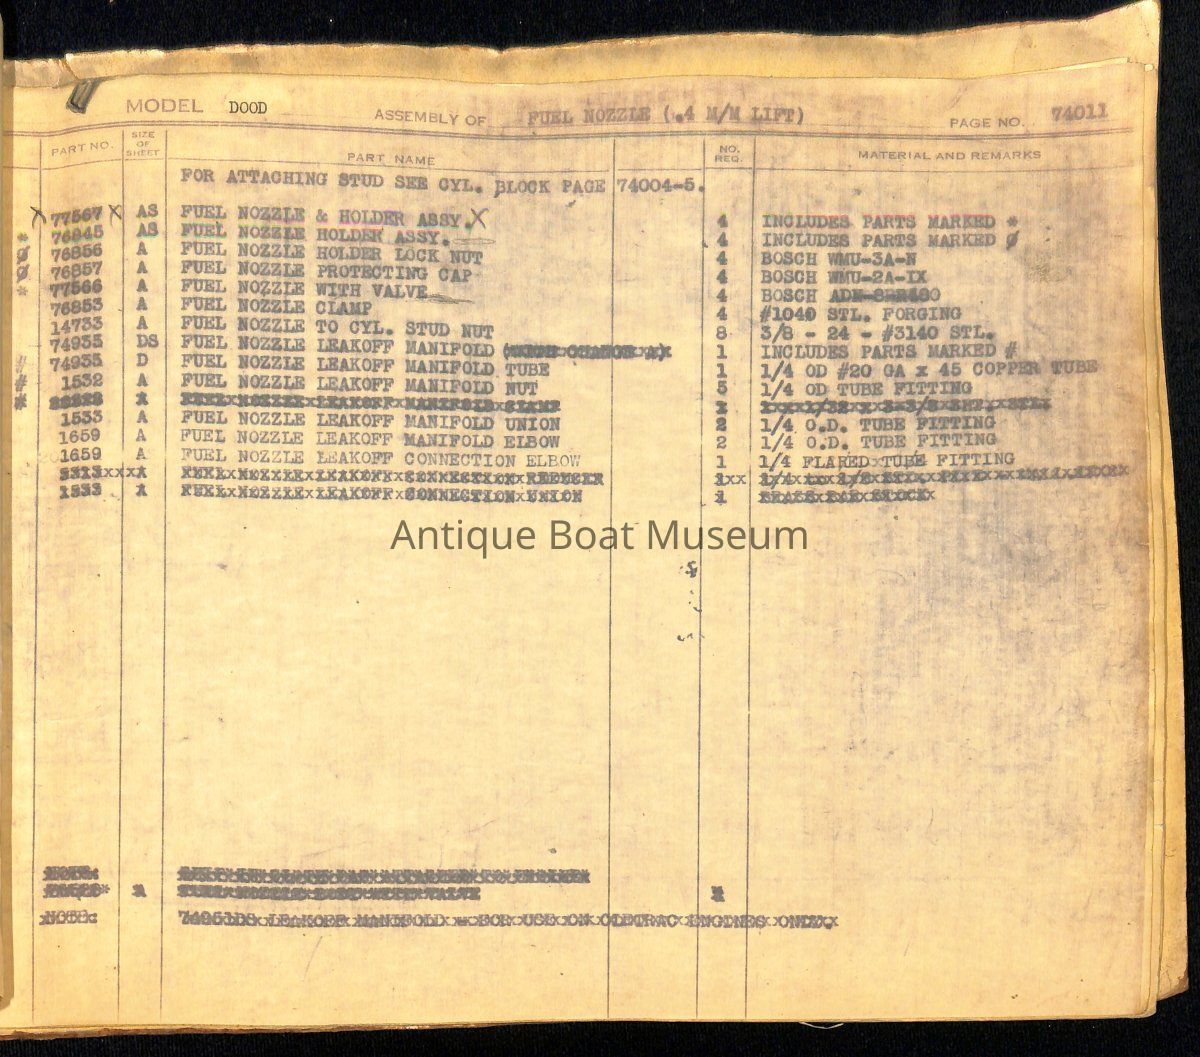 MODEL DOOD ASSEMBLY OF FUEL NOZZLE (.4 M/M LIFT) PAGE NO. 74011
PART NO. SIZE OF SHEET PART NAME NO. REQ. MATERIAL AND REMARKS
FOR ATTACHING STUD SEE CYL. BLOCK PAGE 74004-5.
X 77567 X AS FUEL NOZZLE & HOLDER ASSY. X 4 INCLUDES PARTS MARKED *
* 76845 AS FUEL NOZZLE HOLDER ASSY. 4 INCLUDES PARTS MARKED Ø
Ø 76856 A FUEL NOZZLE HOLDER LOCK NUT 4 BOSCH WMU-3A-N
Ø 76857 A FUEL NOZZLE PROTECTING CAP 4 BOSCH WMU-2A-IX
* 77566 A FUEL NOZZLE WITH VALVE 4 BOSCH
76853 A FUEL NOZZLE CLAMP 4 #1040 STL. FORGING
14733 A FUEL NOZZLE TO CYL. STUD NUT 8 3/8 - 24 - #3140 STL.
74935 DS FUEL NOZZLE LEAKOFF MANIFOLD 1 INCLUDES PARTS MARKED #
# 74935 D FUEL NOZZLE LEAKOFF MANIFOLD TUBE 1 1/4 OD #20 GA x 45 COPPER TUBE
# 1532 A FUEL NOZZLE LEAKOFF MANIFOLD NUT 5 1/4 OD TUBE FITTING
# A FUEL NOZZLE LEAKOFF MANIFOLD CLAMP
1533 A FUEL NOZZLE LEAKOFF MANIFOLD UNION 2 1/4 O.D. TUBE FITTING
1659 A FUEL NOZZLE LEAKOFF MANIFOLD ELBOW 2 1/4 O.D. TUBE FITTING
1659 A FUEL NOZZLE LEAKOFF CONNECTION ELBOW 1 1/4 FLARED TUBE FITTING
A FUEL NOZZLE LEAKOFF CONNECTION 1
1533 A FUEL NOZZLE LEAKOFF CONNECTION UNION 1 BRASS BAR STOCK
Antique Boat Museum
NOTE:
A
NOTE: 74951DS LEAKOFF MANIFOLD - FOR USE ON OLETRAC ENGINES ONLY.